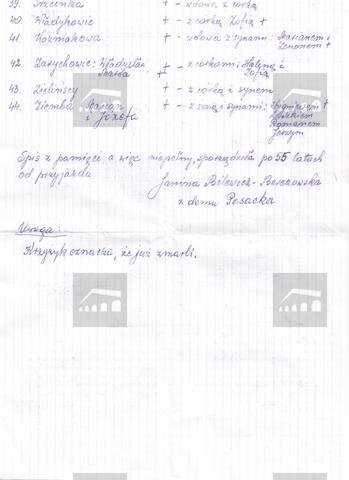 39. Trzcinka + - wdowa z córką
40. Władykowie + - z córką Zofią +
41. Koźmakowa + - wdowa z synami: Marianem i Zenonem +
42. Zarychowie: Władysław + - z córkami: Heleną i Zofią
43. Zielińscy + - z córką i synem
44. Ziemba i Józefa + - z córą i synami: Zbigniewem + Romanem Jerzym
Spis z pamięci a więc niepełny, sporządziła po 55 latach
od przyjazdu
Janina Bilewicz-Berezowska
z domu Posacka
Uwaga:
Krzyżyk oznacza, że już zmarli.